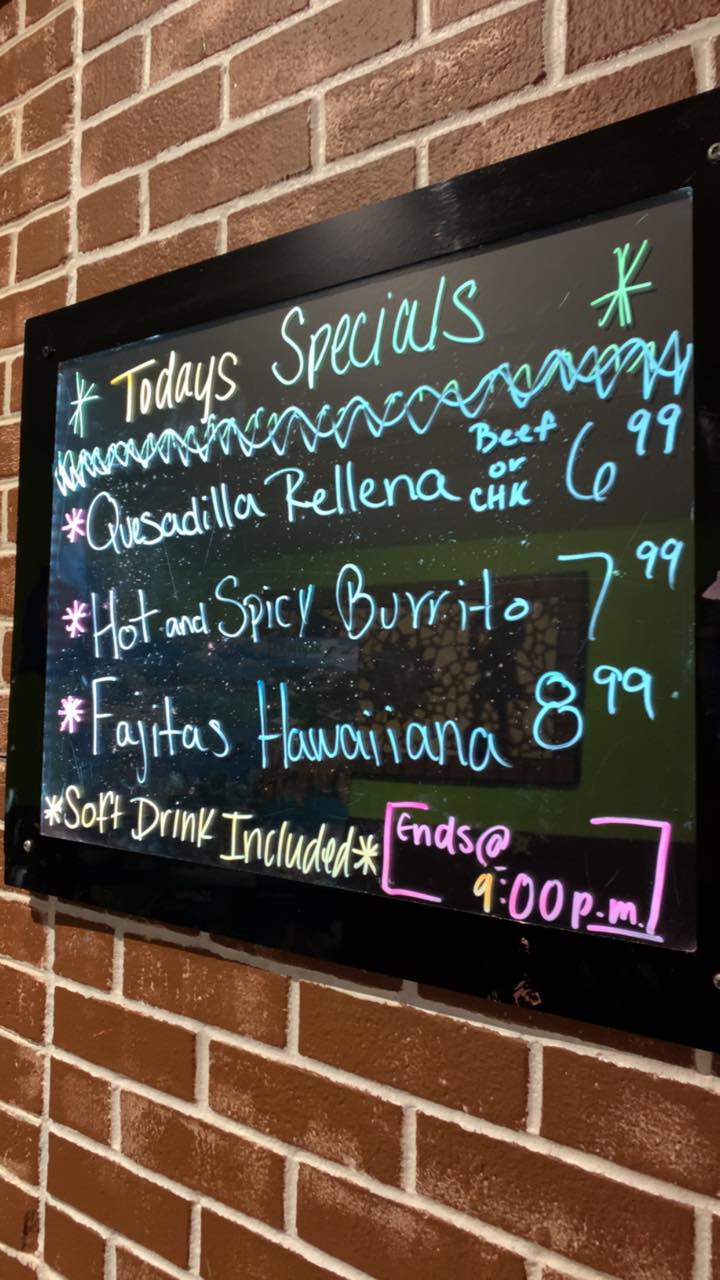 * Todays Specials *
* Quesadilla Rellena Beef or CHK 6 99
* Hot and Spicy Burrito 7 99
* Fajitas Hawaiiana 8 99
*Soft Drink Included*
Ends@
9:00 p.m.